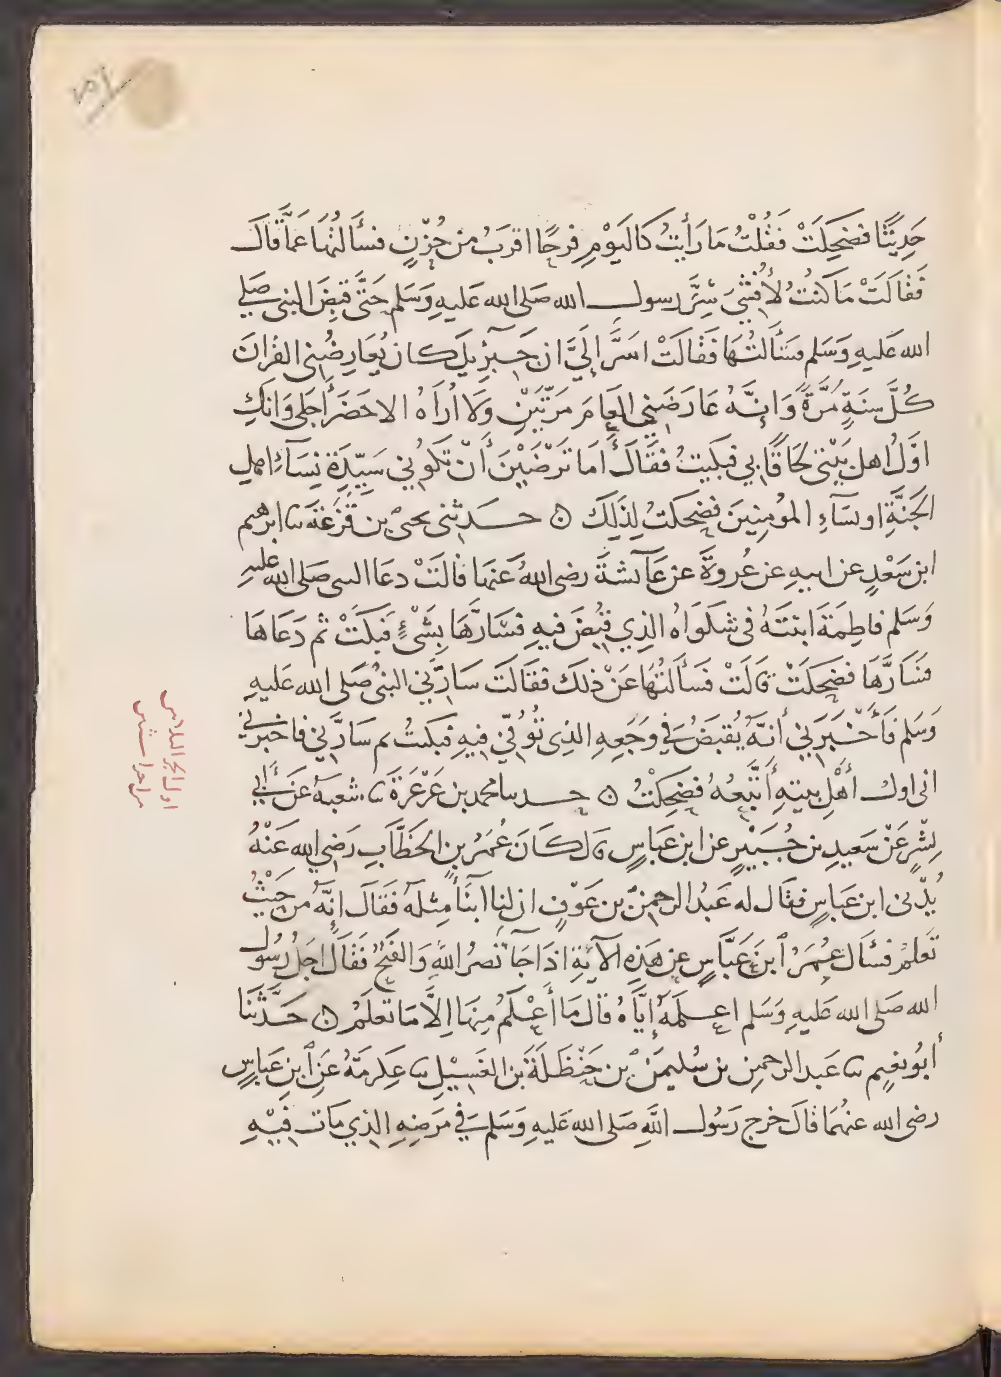 حَدِيثًا فضَحِكَتْ فَقُلْتُ مَا رَأَيتُ كَالْيَوْمِ فَرحًا اقربُ من حُزْنٍ فسأَلتُهَا عَمَّا قَالَ
فَقَالَتْ مَا كنتُ لأُفْشِيَ سِرَّ رسول الله صَلى الله عَليهِ وَسَلم حَتَّى قبِضَ النبى صَلى
الله عَليهِ وَسَلم فسَأَلتُهَا فَقَالَتْ اسَرَّ إِلَيَّ ان جِبرِيلَ كان يُعَارِضُنِي القُرانَ
كُلَّ سنَةٍ مَرَّةً وَإِنَّهُ عَارَضَنِي العَامَ مَرّتَيْنِ وَلَا أُرَاهُ الا حَضَرَ أَجَلى وَانكِ
اوّلُ اهل بَيْتى لحَاقًا بي فبكيتُ فقَالَ أَمَا تَرْضَيْنَ أَنْ تَكُونِي سَيِّدَةَ نِسَاءِ اهلِ
الجَنَّةِ او نسَآءِ المؤمِنِينَ فضحكتُ لِذَلِكَ ۞ حدثنى يحيى بن قَزَعَةَ نا ابرهيم
ابن سَعْدٍ عن ابيهِ عن عُروَةَ عن عَآئشةَ رضى اللهُ عَنهَا قالَتْ دعَا النبى صَلى الله عليهِ
وَسَلم فاطِمَةَ ابنتَهُ فى شكوَاهُ الذِي قبُضَ فيهِ فسَارَّهَا بِشَىْءٍ فَبكَتْ ثم دَعَاهَا
فسَارَّهَا فضحِكَتْ قالَتْ فسَأَلتُهَا عَنْ ذلكَ فقَالَت سَارَّنِي النبىُ صَلى الله عَليهِ
وَسَلم فَأَخْبَرَنِي أَنهُ يُقبَضُ في وَجَعِهِ الذِى تُوُفِّيَ فيهِ فبكيتُ ثم سَارَّنِي فاخبرَنِي
انى اول أَهْلِ بيتِهِ أَتْبَعُهُ فَضحِكْتُ ۞ حدثنا محمد بن عَرْعَرَةَ نا شعبة عَنْ أَبِي
بِشْرٍ عَنْ سَعيدِ بن جُبَيْرٍ عن ابن عَبَاسٍ قال كَانَ عُمَرُ بن الخَطَّابِ رَضى الله عَنْهُ
يُدْنى ابن عَباسٍ فقَال له عَبدُ الرحمن بن عَوْفٍ ان لنا أبنَاً مِثلَهُ فَقَالَ إِنَّهُ من حَيْثُ
تَعلمُ فسَأَل عُمَرُ ابنَ عَبَّاسٍ عن هَذِهِ الآيةِ اذَا جَاءَ نَصْرُ اللهِ وَالفَتحُ فقَالَ اجَلُ رسُولِ
الله صَلى الله عَليهِ وَسَلم اعلَمَهُ إِيَّاهُ قالَ مَا أَعْلَمُ مِنهَا إِلَّا مَا تَعلَمُ ۞ حَدَّثَنَا
أَبُو نعيم نا عبد الرحمنِ بن سُليمَنَ بن حَنْظَلَةَ بن الغَسِيْلِ نا عكرمَةُ عَنِ ابنِ عَبَاسٍ
رضى الله عنهُمَا قالَ خرج رَسُول اللهِ صَلى الله عَليهِ وَسَلم في مَرَضِهِ الذِي مَات فِيْهِ
اول الجز الثلاثين